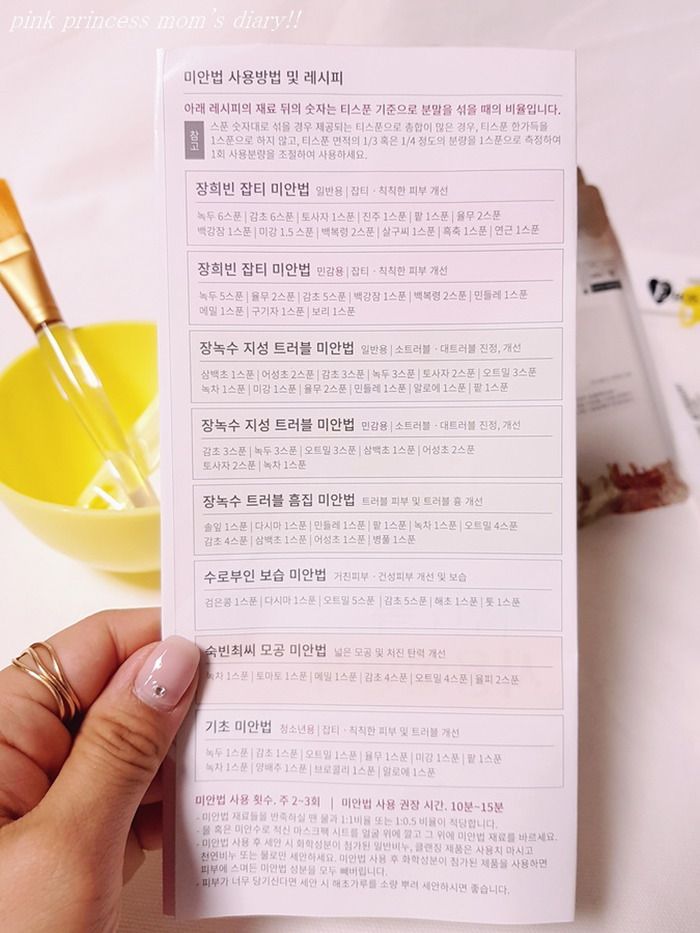 pink princess mom's diary!!
미안법 사용방법 및 레시피
아래 레시피의 재료 뒤의 숫자는 티스푼 기준으로 분말을 섞을 때의 비율입니다.
참고
스푼 숫자대로 섞을 경우 제공되는 티스푼으로 총합이 많은 경우, 티스푼 한가득을
1스푼으로 하지 않고, 티스푼 면적의 1/3 혹은 1/4 정도의 분량을 1스푼으로 측정하여
1회 사용분량을 조절하여 사용하세요.
장희빈 잡티 미안법 일반용 | 잡티 · 칙칙한 피부 개선
녹두 6스푼 | 감초 6스푼 | 토사자 1스푼 | 진주 1스푼 | 팥 1스푼 | 율무 2스푼
백강잠 1스푼 | 미강 1.5 스푼 | 백복령 2스푼 | 살구씨 1스푼 | 흑축 1스푼 | 연근 1스푼
장희빈 잡티 미안법 민감용 | 잡티 · 칙칙한 피부 개선
녹두 5스푼 | 율무 2스푼 | 감초 5스푼 | 백강잠 1스푼 | 백복령 2스푼 | 민들레 1스푼
메밀 1스푼 | 구기자 1스푼 | 보리 1스푼
장녹수 지성 트러블 미안법 일반용 | 소트러블 · 대트러블 진정, 개선
삼백초 1스푼 | 어성초 2스푼 | 감초 3스푼 | 녹두 3스푼 | 토사자 2스푼 | 오트밀 3스푼
녹차 1스푼 | 미강 1스푼 | 율무 2스푼 | 민들레 1스푼 | 알로에 1스푼 | 팥 1스푼
장녹수 지성 트러블 미안법 민감용 | 소트러블 · 대트러블 진정, 개선
감초 3스푼 | 녹두 3스푼 | 오트밀 3스푼 | 삼백초 1스푼 | 어성초 2스푼
토사자 2스푼 | 녹차 1스푼
장녹수 트러블 흠집 미안법 트러블 피부 및 트러블 흉 개선
솔잎 1스푼 | 다시마 1스푼 | 민들레 1스푼 | 팥 1스푼 | 녹차 1스푼 | 오트밀 4스푼
감초 4스푼 | 삼백초 1스푼 | 어성초 1스푼 | 병풀 1스푼
수로부인 보습 미안법 거친피부 · 건성피부 개선 및 보습
검은콩 1스푼 | 다시마 1스푼 | 오트밀 5스푼 | 감초 5스푼 | 해초 1스푼 | 톳 1스푼
숙빈최씨 모공 미안법 넓은 모공 및 처진 탄력 개선
녹차 1스푼 | 토마토 1스푼 | 메밀 1스푼 | 감초 4스푼 | 오트밀 4스푼 | 율피 2스푼
기초 미안법 청소년용 | 잡티 · 칙칙한 피부 및 트러블 개선
녹두 1스푼 | 감초 1스푼 | 오트밀 1스푼 | 율무 1스푼 | 미강 1스푼 | 팥 1스푼
녹차 1스푼 | 양배추 1스푼 | 브로콜리 1스푼 | 알로에 1스푼
미안법 사용 횟수. 주 2~3회 | 미안법 사용 권장 시간. 10분~15분
- 미안법 재료들을 반죽하실 땐 물과 1:1비율 또는 1:0.5 비율이 적당합니다.
- 물 혹은 미안수로 적신 마스크팩 시트를 얼굴 위에 깔고 그 위에 미안법 재료를 바르세요.
- 미안법 사용 후 세안 시 화학성분이 첨가된 일반비누, 클렌징 제품은 사용치 마시고
천연비누 또는 물로만 세안하세요. 미안법 사용 후 화학성분이 첨가된 제품을 사용하면
피부에 스며든 미안법 성분을 모두 빼버립니다.
- 피부가 너무 당기신다면 세안 시 해초가루를 소량 뿌려 세안하시면 좋습니다.